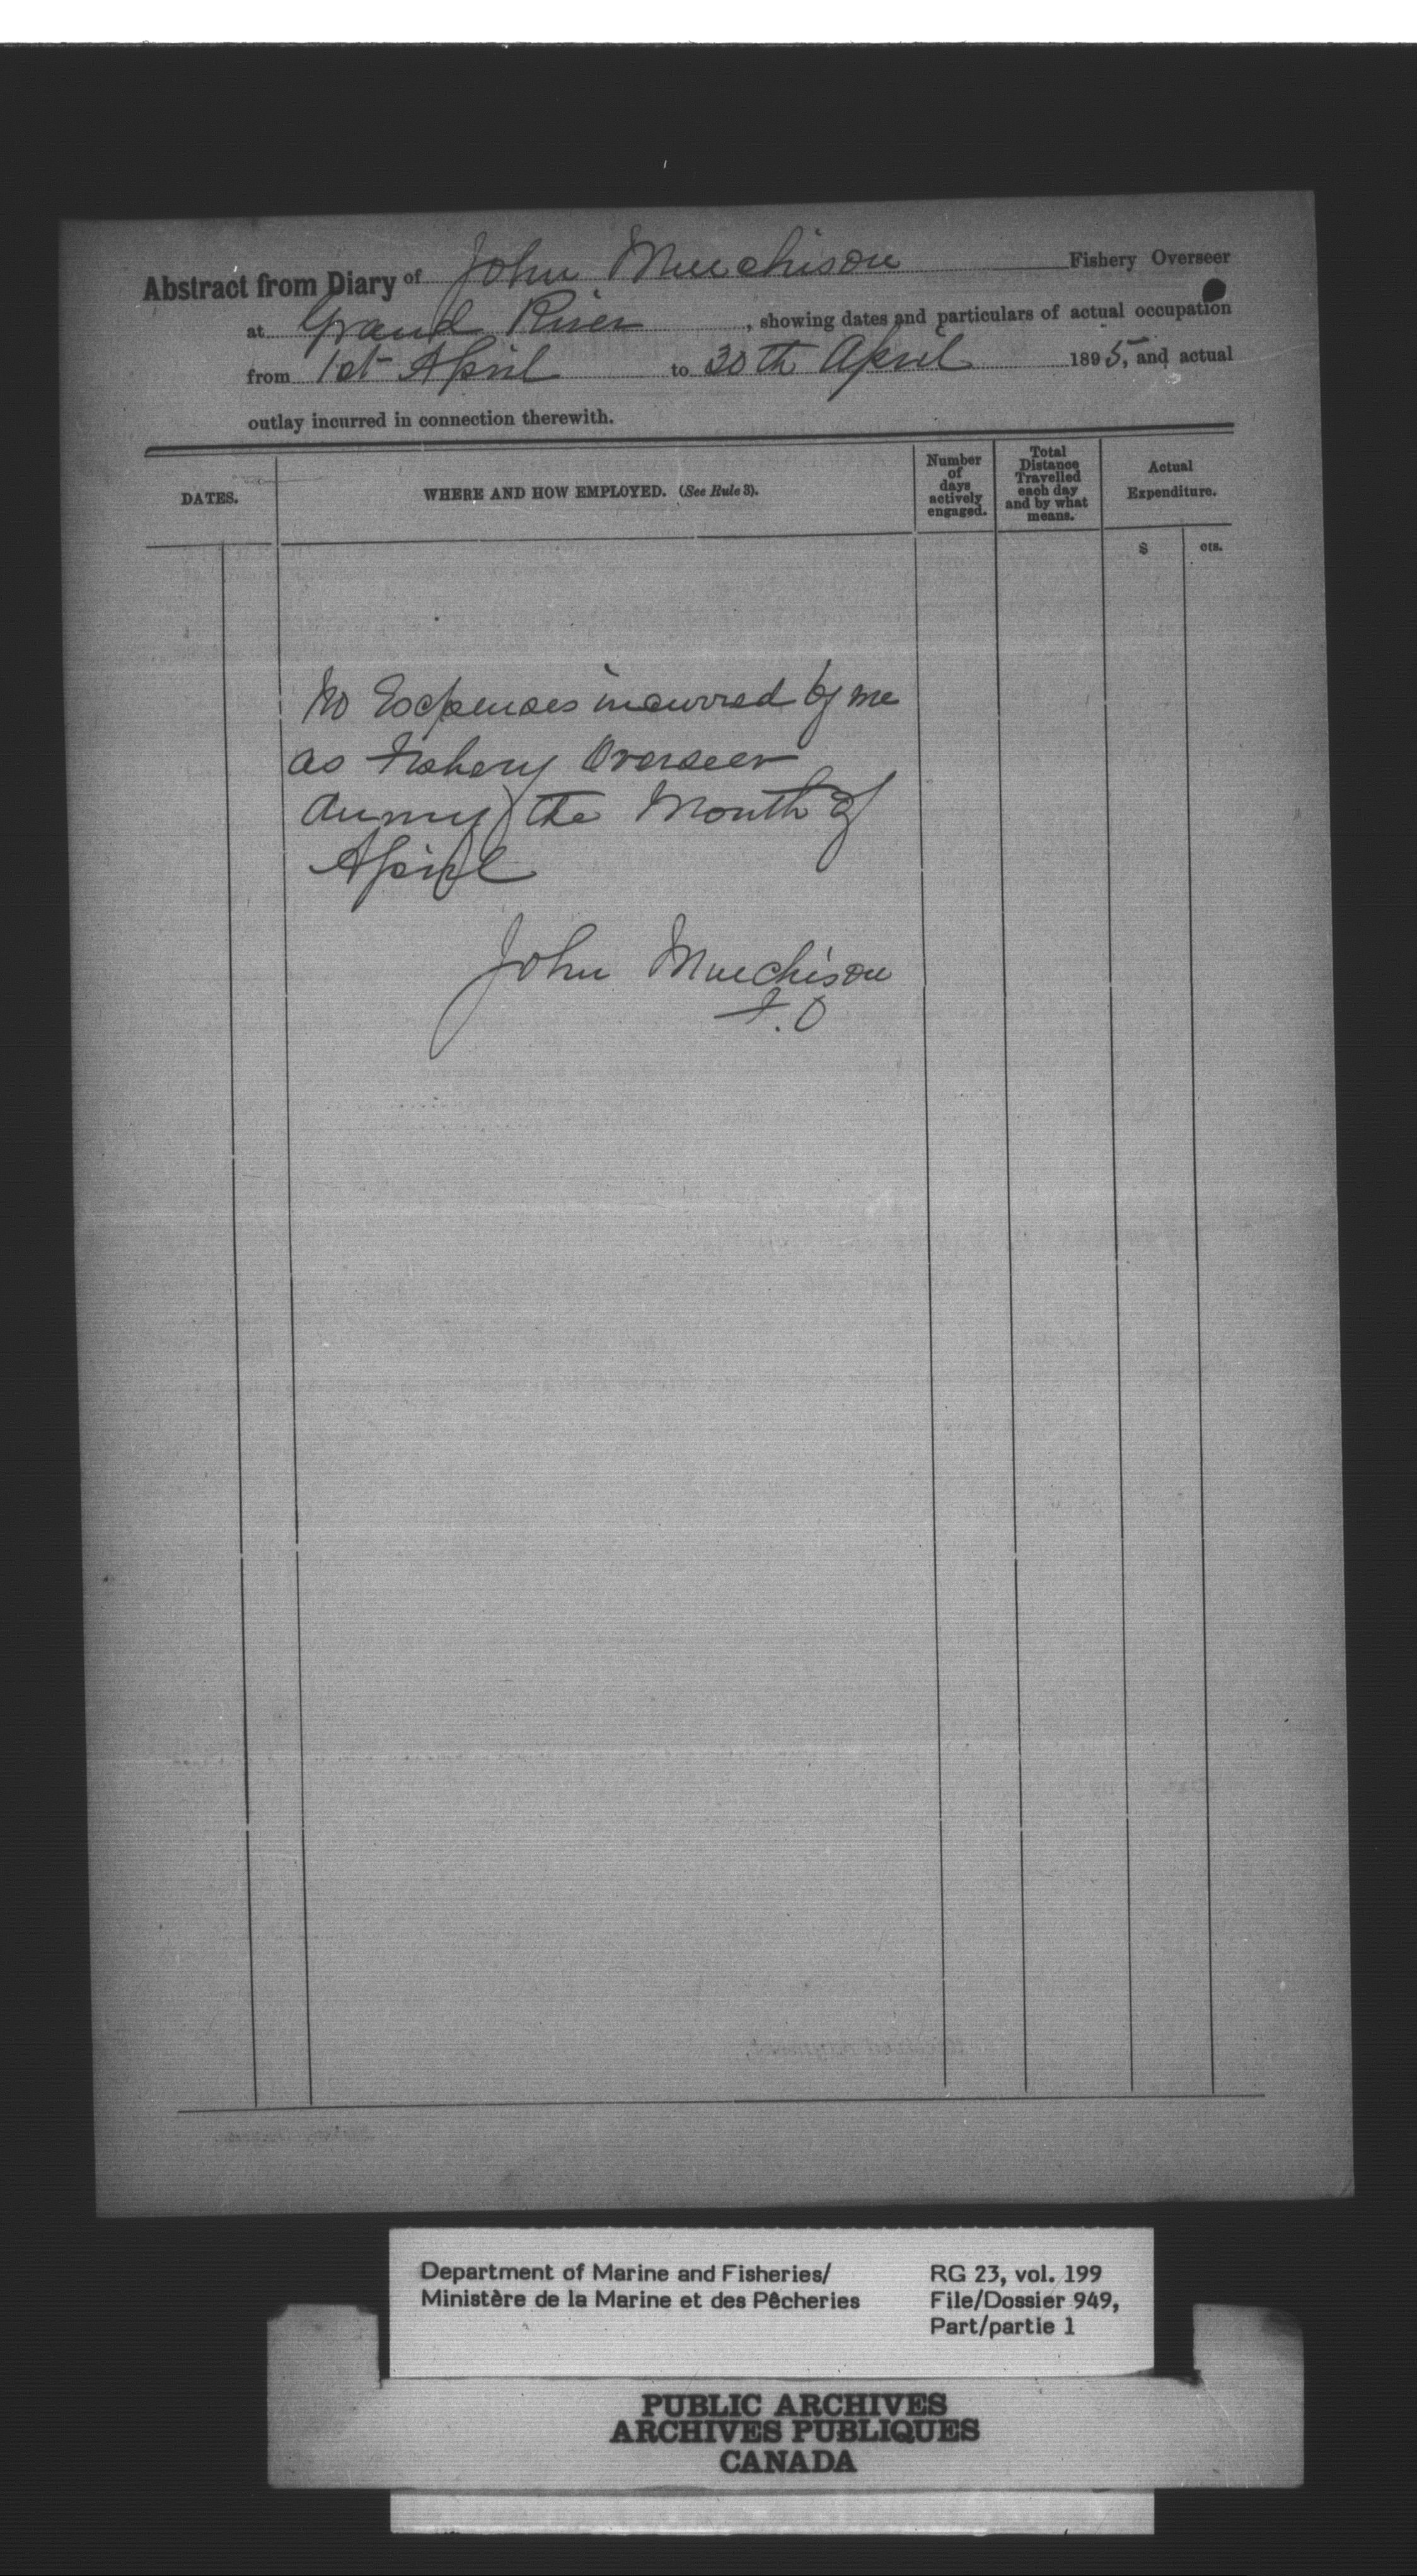 Abstract from Diary of John Murchison Fishery Overseer
at Grand River, showing dates and particulars of actual occupation
from 1st April to 30th April 1895, and actual
outlay incurred in connection therewith.
DATES.
WHERE AND HOW EMPLOYED. (See Rule 3).
Number
of
days
actively
engaged.
Total
Distance
Travelled
each day
and by what
means.
Actual
Expenditure.
$ cts.
No Expenses incurred by me
as Fishery Overseer
during the Month of
April
John Murchison
F.O
Department of Marine and Fisheries/
Ministère de la Marine et des Pêcheries
RG 23, vol. 199
File/Dossier 949,
Part/partie 1
PUBLIC ARCHIVES
ARCHIVES PUBLIQUES
CANADA